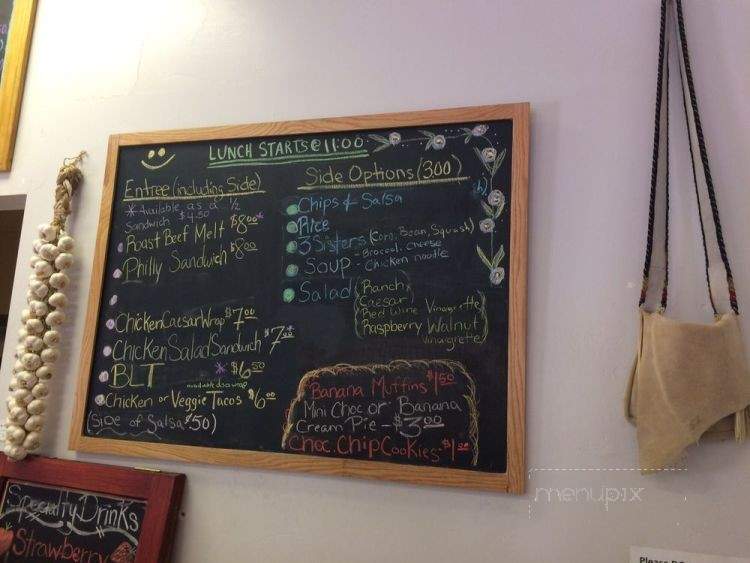 LUNCH STARTS @ 11:00
Entree (including Side)
*Available as a 1/2
Sandwich $4.50
Roast Beef Melt $8.00*
Philly Sandwich $8.00
Chicken Caesar Wrap $7.00
Chicken Salad Sandwich $7.00*
BLT *$6.50
available as a wrap
Chicken or Veggie Tacos $6.00
(Side of Salsa $.50)
Side Options (300)
Chips & Salsa
Rice
3 Sisters (Corn, Bean, Squash)
Soup - Broccoli Cheese
- Chicken noodle
Salad (Ranch
Caesar
Red Wine Vinaigrette
Raspberry Walnut
Vinaigrette)
Banana Muffins $1.50
Mini Choc or Banana
Cream Pie - $3.00
Choc. Chip Cookies $1.00
Specialty Drinks
Strawberry
menupix
Please